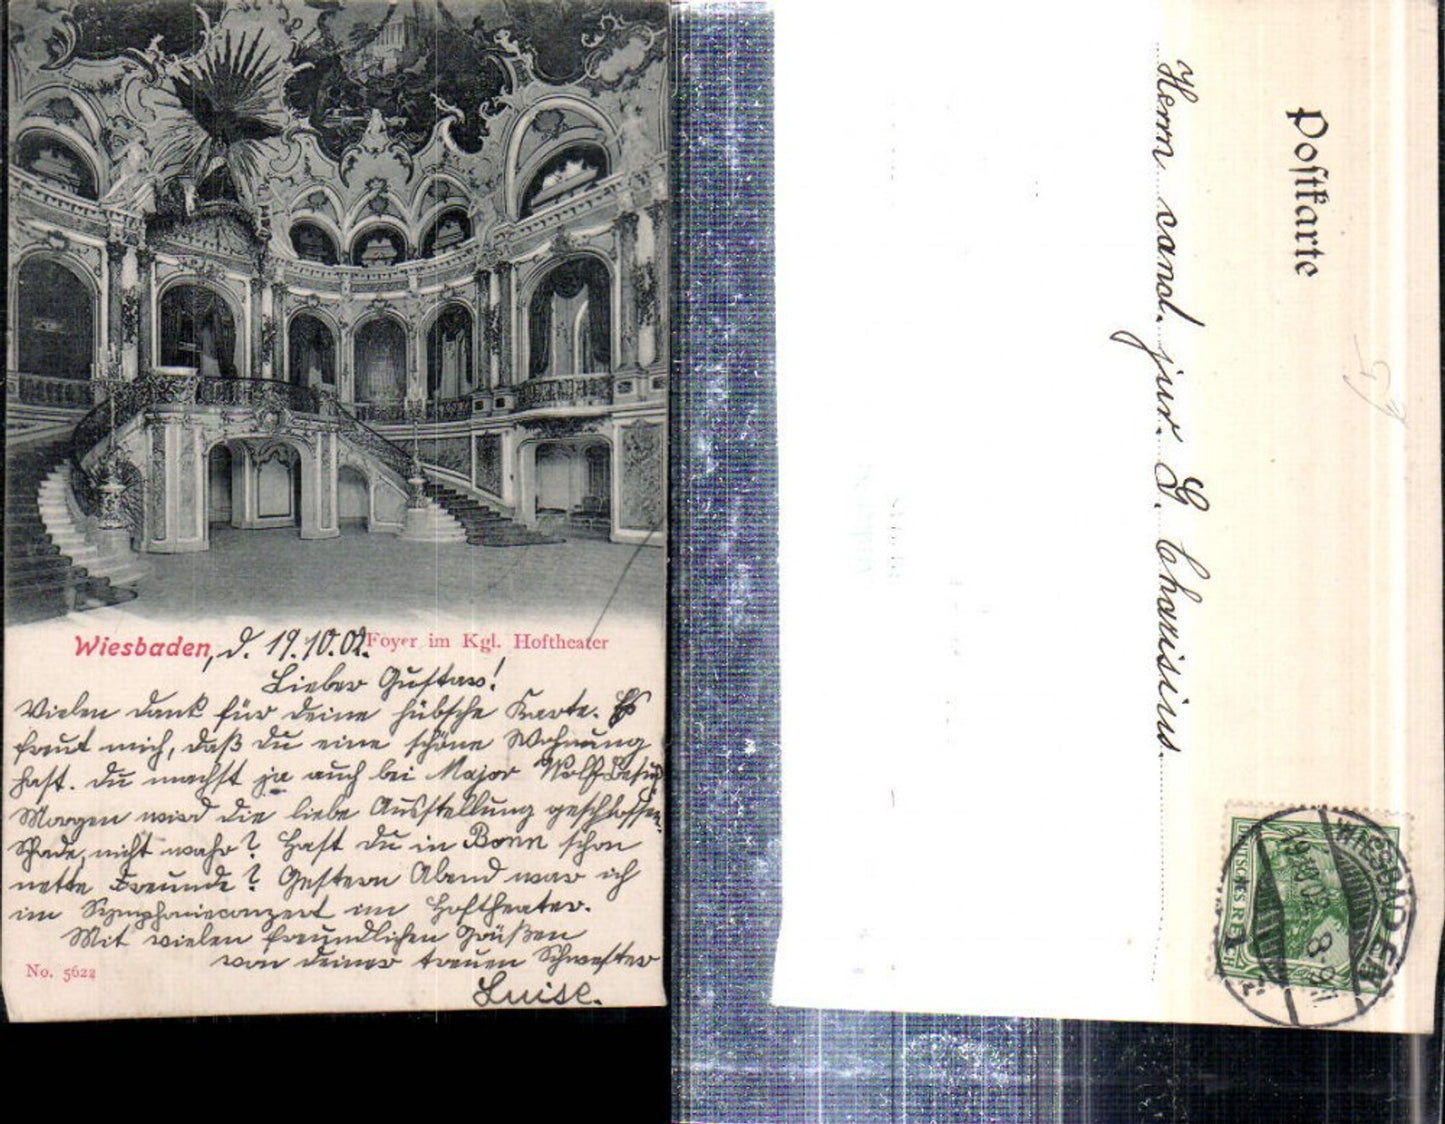 Wiesbaden, d. 19.10.02. Foyer im Kgl. Hoftheater
Lieber Gustav!
Vielen Dank für deine hübsche Karte. Es
freut mich, daß du eine schöne Wohnung
hast. Du machst ja auch bei Major Wolf Besuch
Morgen wird die liebe Ausstellung geschlossen.
Schade, nicht wahr? Hast du in Bonn schon
nette Freunde? Gestern Abend war ich
im Symphonieconzert im Hoftheater.
Mit vielen freundlichen Grüßen
von deiner treuen Schwester
Luise.
No. 5622
Postkarte
Herrn cand. jur. G. Chavisius.
DEUTSCHES REICH
WIESBADEN
19.10.02. 8-9N.